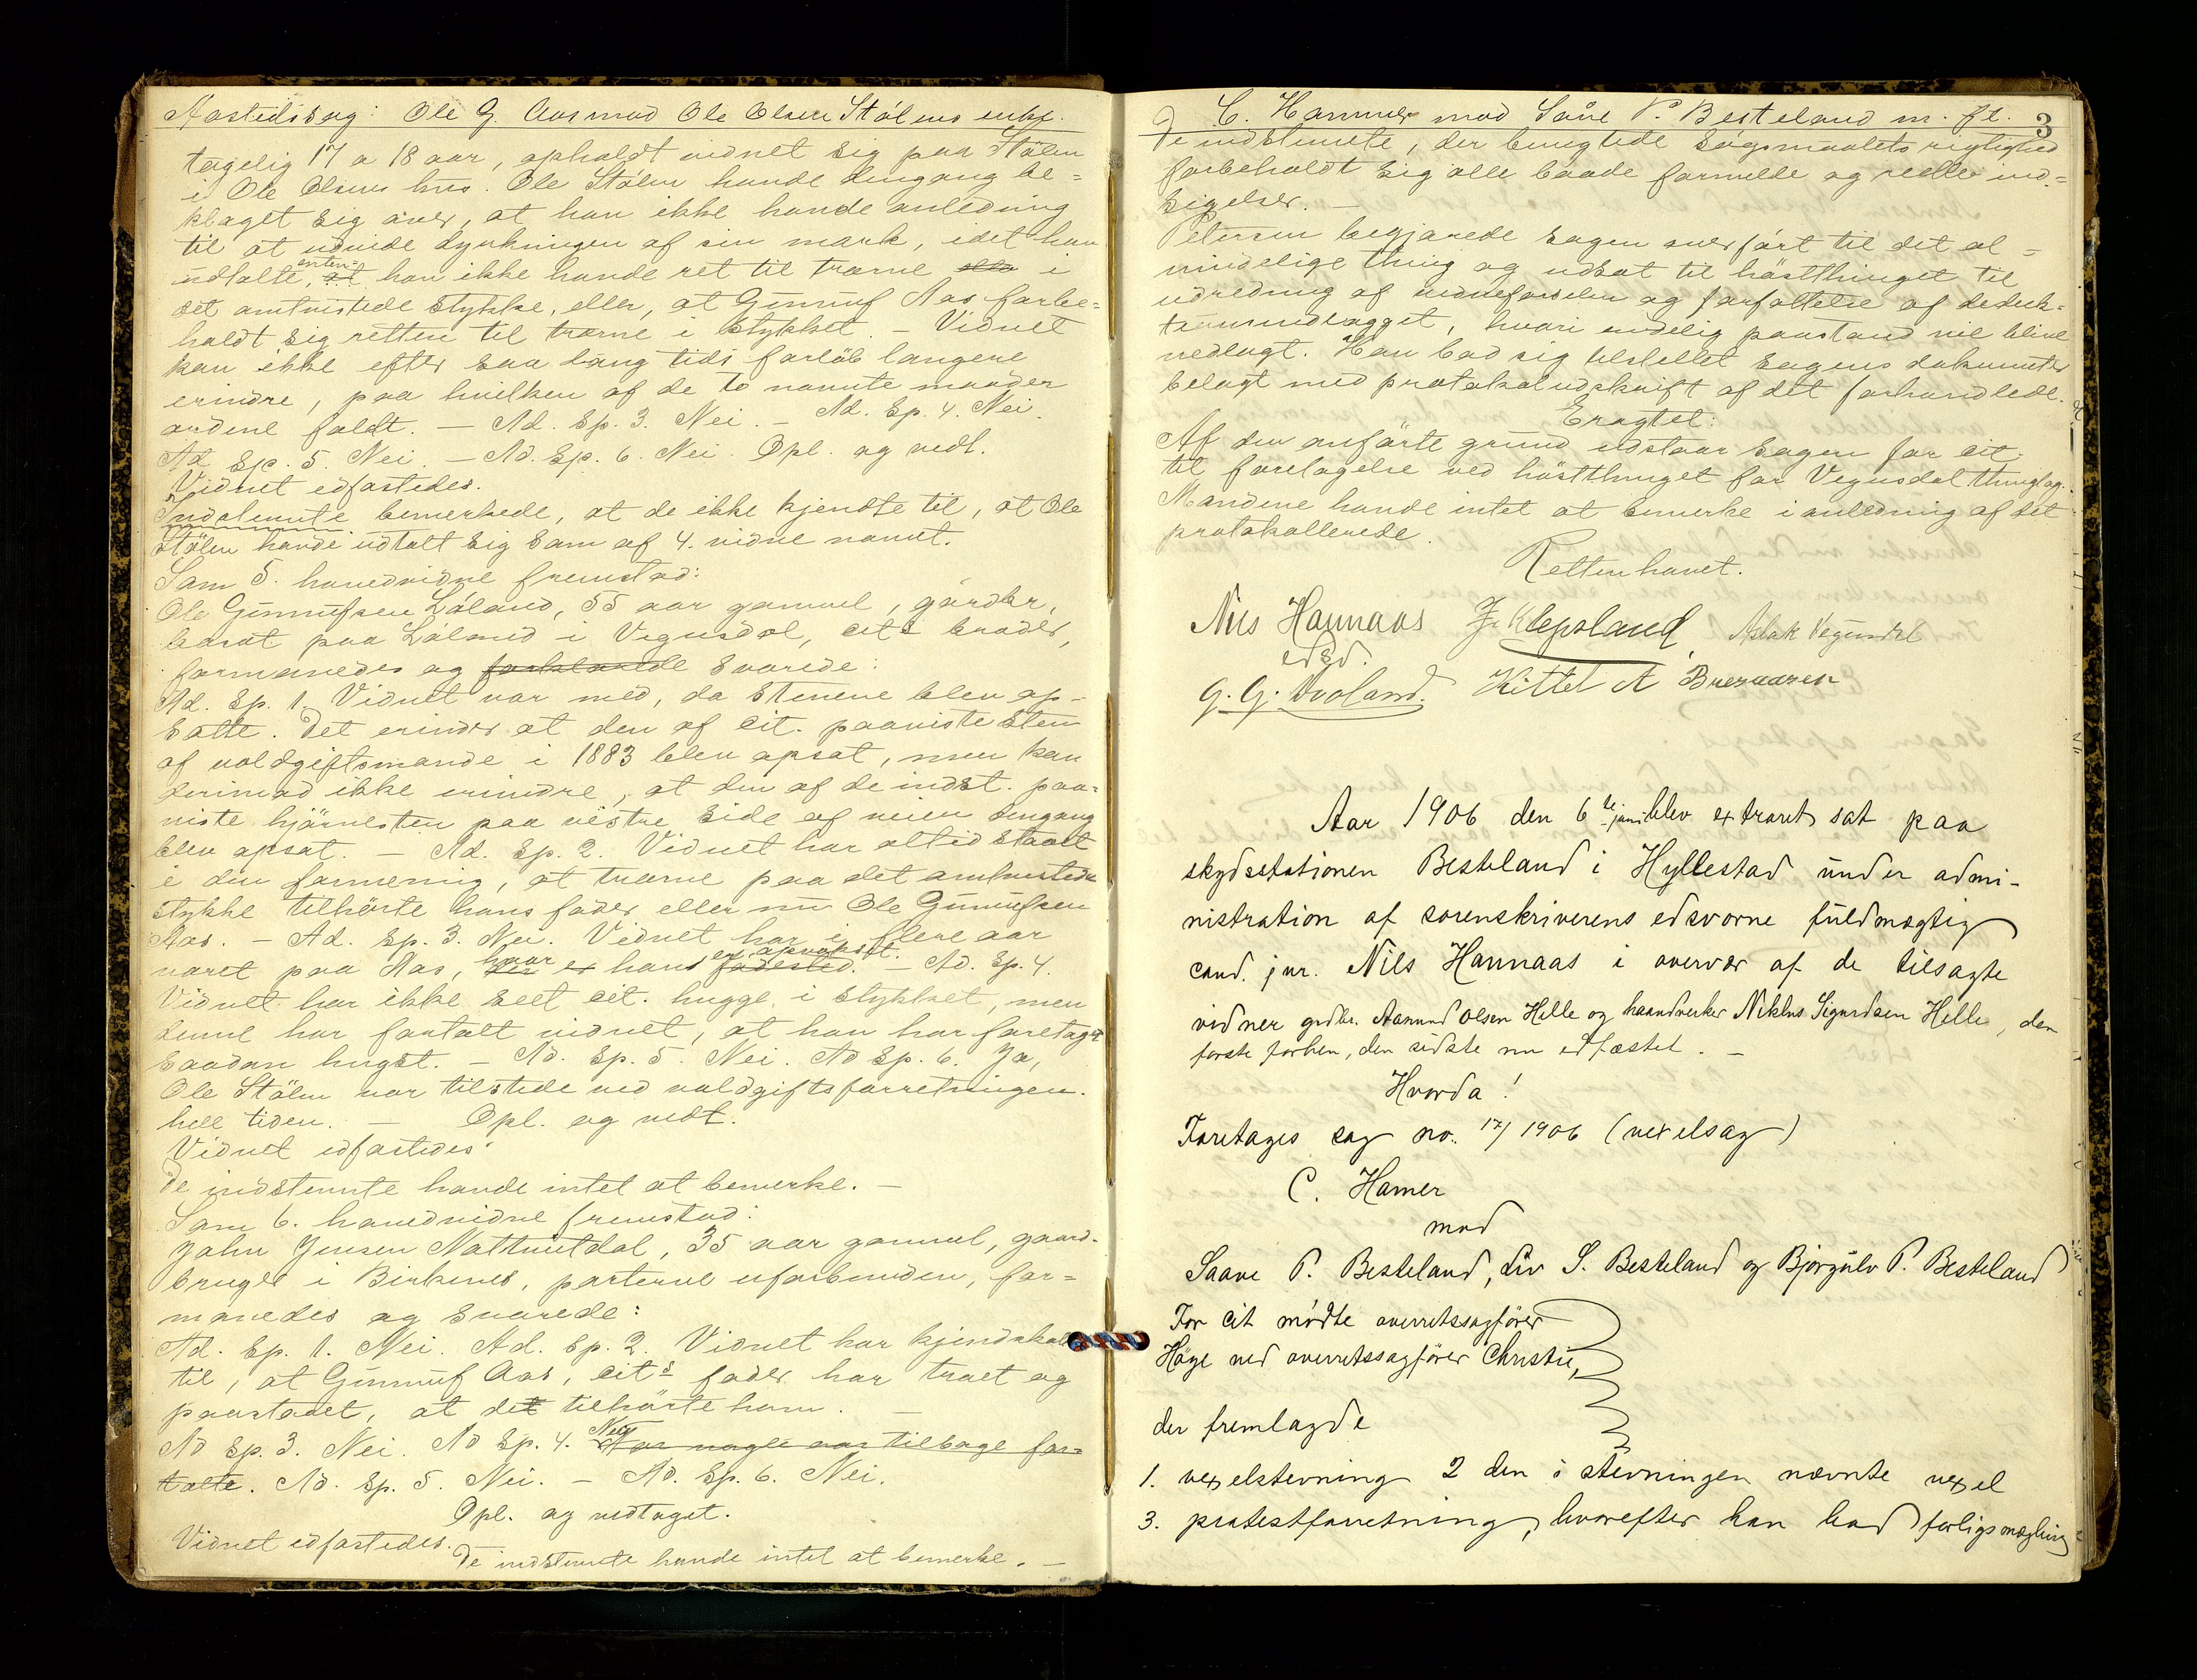 Aastedssag: Ole G. Aas mod Ole Olsen Stólens enke.
tagelig 17 a 18 aar, opholdt vidnet sig paa Stólen
i Ole Olsens hus. Ole Stólen havde dengang be=
klaget sig over, at han ikke havde anledning
til at udvide dyrkningen af sin mark, idet han
udtalte, enten at han ikke havde ret til træerne eller i
det omtvistede stykke, eller, at Gunnuf Aas forbe=
holdt sig retten til træerne i stykket. – Vidnet
kan ikke efter saa lang tids forløb længere
erindre, paa hvilken af de to nævnte maader
ordene faldt. – Ad. Sp. 3. Nei. – Ad. Sp. 4. Nei.
Ad Sp. 5. Nei. – Ad. Sp. 6. Nei. Opl. og vedt.
Vidnet edfæstedes.
Indstevnte bemerkede, at de ikke kjendte til, at Ole
Stólen havde udtalt sig som af 4. vidne nævnt.
Som 5. hovedvidne fremstod:
Ole Gunnufsen Lóland, 55 aar gammel, gårdbr,
bosat paa Lóland i Vegusdal, cits broder,
formanedes og forklarede svarede:
Ad. Sp. 1. Vidnet var med, da stenene blev op-
satte. Det erindrer at den af cit. paaviste sten
af voldgiftsmænde i 1883 blev opsat, men kan
derimod ikke erindre, at den af de indst. paa=
viste hjórnesten paa vestre side af veien dengang
blev opsat. – Ad. Sp. 2. Vidnet har altid staaet
i den formening, at træerne paa det omtvistede
stykke tilhórte hans fader eller nu Ole Gunnufsen
Aas. – Ad. Sp. 3. Nei. Vidnet har i flere aar
været paa Aas, der hvor er han er opvokset. fødested. – Ad. Sp. 4.
Vidnet har ikke seet cit. hugge i stykket, men
denne har fortalt vidnet, at han har foretaget
saadan hugst. – Ad. Sp. 5. Nei. Ad Sp. 6. Ja,
Ole Stólen var tilstede ved voldgiftsforretningen.
hele tiden. – Opl. og vedt.
Vidnet edfæstedes.
De indstevnte havde intet at bemerke. –
Som 6. hovedvidne fremstod:
John Jensen Nattmitdal, 35 aar gammel, gaard-
bruger i Birkenes, parterne uforbunden, for=
manedes og svarede:
Ad. Sp. 1. Nei. Ad. Sp. 2. Vidnet har kjendskab
til, at Gunnuf Aas, cits fader har troet og
paastaaet, at det tilhórte ham. –
Ad Sp. 3. Nei. Ad Sp. 4. Nei For nogle aar tilbage for=
talte. Ad. Sp. 5. Nei. – Ad. Sp. 6. Nei.
Opl. og vedtaget.
Vidnet edfæstedes.
De indstevnte havde intet at bemerke. –
C. Hammer mod Såve P. Besteland m. fl. 3
De indstevnte, der benegtede søgsmaalets rigtighed
forbeholdt sig alle baade formelle og reelle ind=
sigelser. –
Petersen begjærede sagen overfórt til det al=
mindelige thing og udsat til hóstthinget til
udredning af vidneførselen og forfattelse af deduk=
tionsindlægget, hvori endelig paastand vil blive
nedlagt. Han bad sig tilstillet sagens dokumenter
belagt med protokoludskrift af det forhandlede.
Eragtet:
Af den anfórte grund udstaar sagen for cit.
til foretagelse ved hóstthinget for Vegusdal thinglag.
Mændene havde intet at bemerke i anledning af det
protokollerede.
Retten hævet.
Nils Hannaas J. Klepsland Aslak Vegusdal
edsv.
G. G. Dvoland. Kittel A
Aar 1906 den 6te juni blev extraret sat paa
skydsstationen Besteland i Hyllestad under admi-
nistration af sorenskriverens edsvorne fuldmægtig
cand. jur. Nils Hannaas i overvær af de tilsagte
vidner grdbr. Aasmund Olsen Helle og haandverker Niklus Sigurdsen Helle, den
første forhen, den sidste nu edfæstet. –
Hvorda!
Foretages sag no. 17/1906 (vexelsag)
C. Hamer
mod
Saave P. Besteland, Liv S. Besteland og Bjorgulv P. Besteland
For cit mødte overretssagfører
Høge ved overretssagfører Christie,
der fremlagde
1. vexelstevning 2 den i stevningen nævnte vexel
3. protestforretning, hvorefter han bad forligsmægling